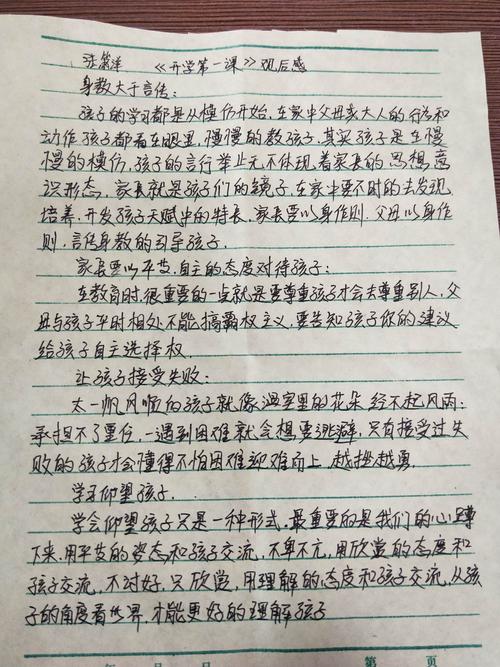 《开学第一课》观后感
身教大于言传:
孩子的学习都是从模仿开始,在家中父母亲大人的行为和
动作,孩子都看在眼里,慢慢的教孩子,其实孩子是在慢
慢的模仿,孩子的言行举止无不体现着家长的思想,意
识形态,家长就是孩子们的镜子,在家中要不时的去发现
培养,开发孩子天赋中的特长,家长要以身作则.父母以身作
则,言传身教的引导孩子.
家长要以平等.自主的态度对待孩子:
在教育时,很重要的一点就是要尊重孩子才会去尊重别人,父
母与孩子平时相处不能搞霸权主义,要告知孩子你的建议
给孩子自主选择权.
让孩子接受失败:
太一帆风顺的孩子就像温室里的花朵经不起风雨;
承担不了重任,一遇到困难就会想要逃避,只有接受过失
败的孩子才会懂得不怕困难迎难而上,越挫越勇.
学习仰望孩子.
学会仰望孩子只是一种形式,最重要的是我们的心蹲
下来,用平等的姿态和孩子交流,不卑不亢,用欣赏的态度和
孩子交流,不讨好,只欣赏,用理解的态度和孩子交流,从孩
子的角度看世界,才能更好的理解孩子
年 月 日 第 页